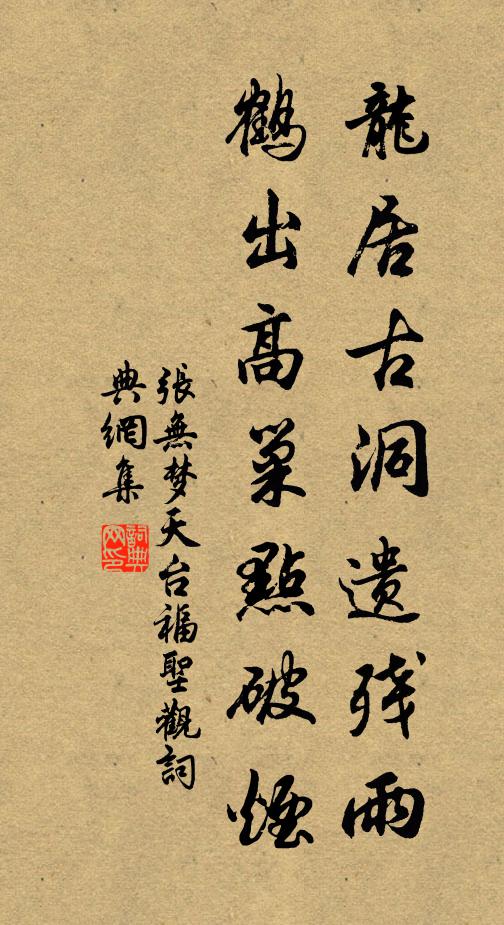 龍居古洞遺残雨
鶴出高巢點破煙
張無梦天台福聖觀詞
典網集
詞典网印